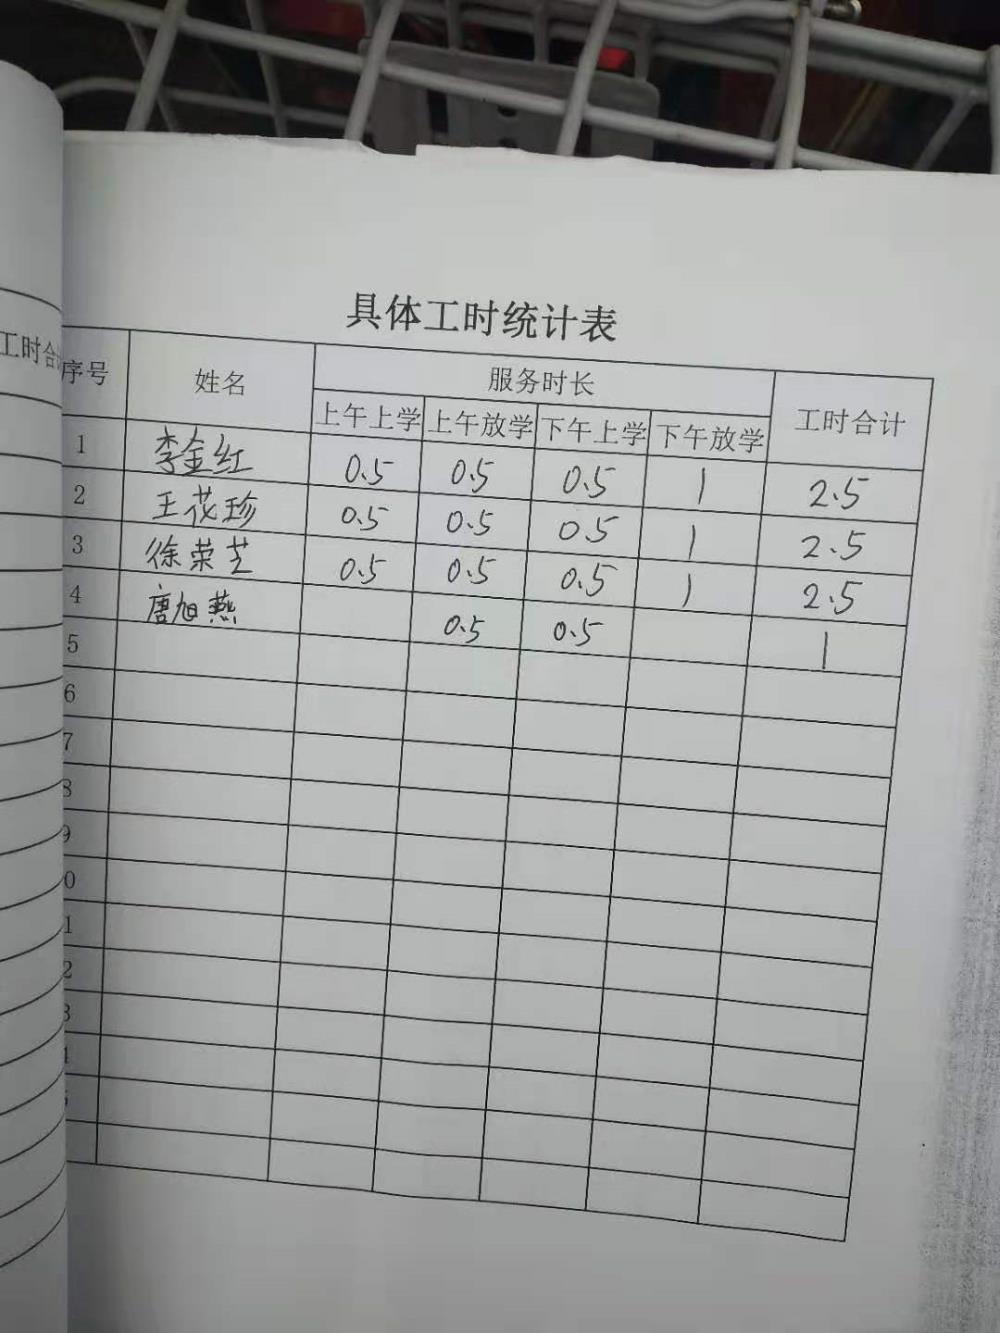 具体工时统计表
工时合
序号 姓名 服务时长 工时合计
上午上学 上午放学 下午上学 下午放学
1 李金红 0.5 0.5 0.5 1 2.5
2 王花珍 0.5 0.5 0.5 1 2.5
3 徐荣芝 0.5 0.5 0.5 1 2.5
4 唐旭燕 0.5 0.5 1
5
6
7
8
9
0
1
2
3
4
5